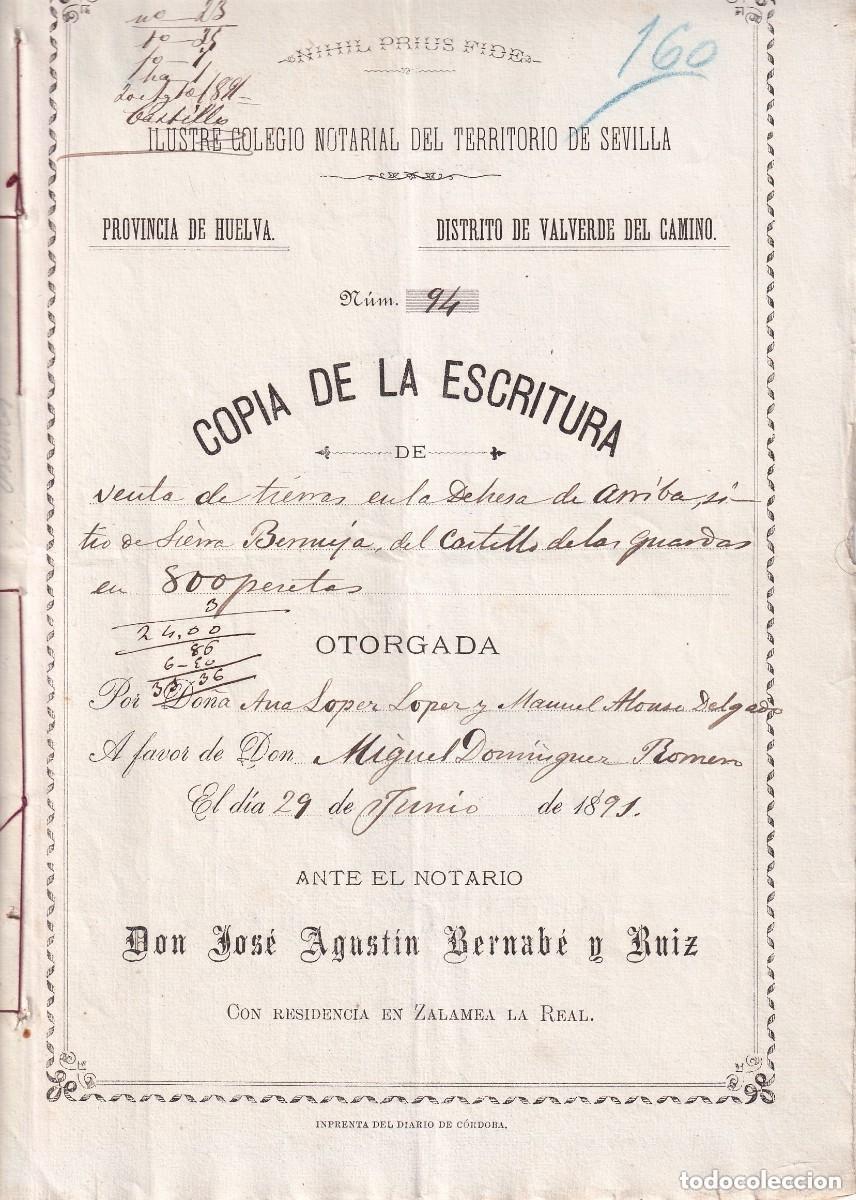 nº — 23
tº — 35
fº — 7
hª — 1
20 Agto 1891 —
Castillo
160
NIHIL PRIUS FIDE
ILUSTRE COLEGIO NOTARIAL DEL TERRITORIO DE SEVILLA
PROVINCIA DE HUELVA.
DISTRITO DE VALVERDE DEL CAMINO.
Núm. 94
COPIA DE LA ESCRITURA
DE
venta de tierras en la Dehesa de Arriba, si-
tio de Sierra Bermeja, del Castillo de las Guardas
en 800 pesetas
3
24,00
86
OTORGADA
Por Doña Ana Lopez Lopez y Manuel Alonso Delgado
A favor de Don Miguel Domínguez Romero
El día 29 de Junio de 1891.
ANTE EL NOTARIO
Don José Agustín Bernabé y Ruiz
CON RESIDENCIA EN ZALAMEA LA REAL.
INPRENTA DEL DIARIO DE CÓRDOBA.
todocoleccion